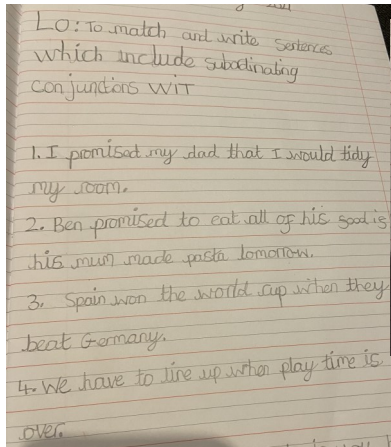 LO: To match and write sentences
which include subordinating
conjunctions WIT
1. I promised my dad that I would tidy
my room.
2. Ben promised to eat all of his food is
his mum made pasta tomorrow.
3. Spain won the world cup when they
beat Germany.
4. We have to line up when play time is
over.